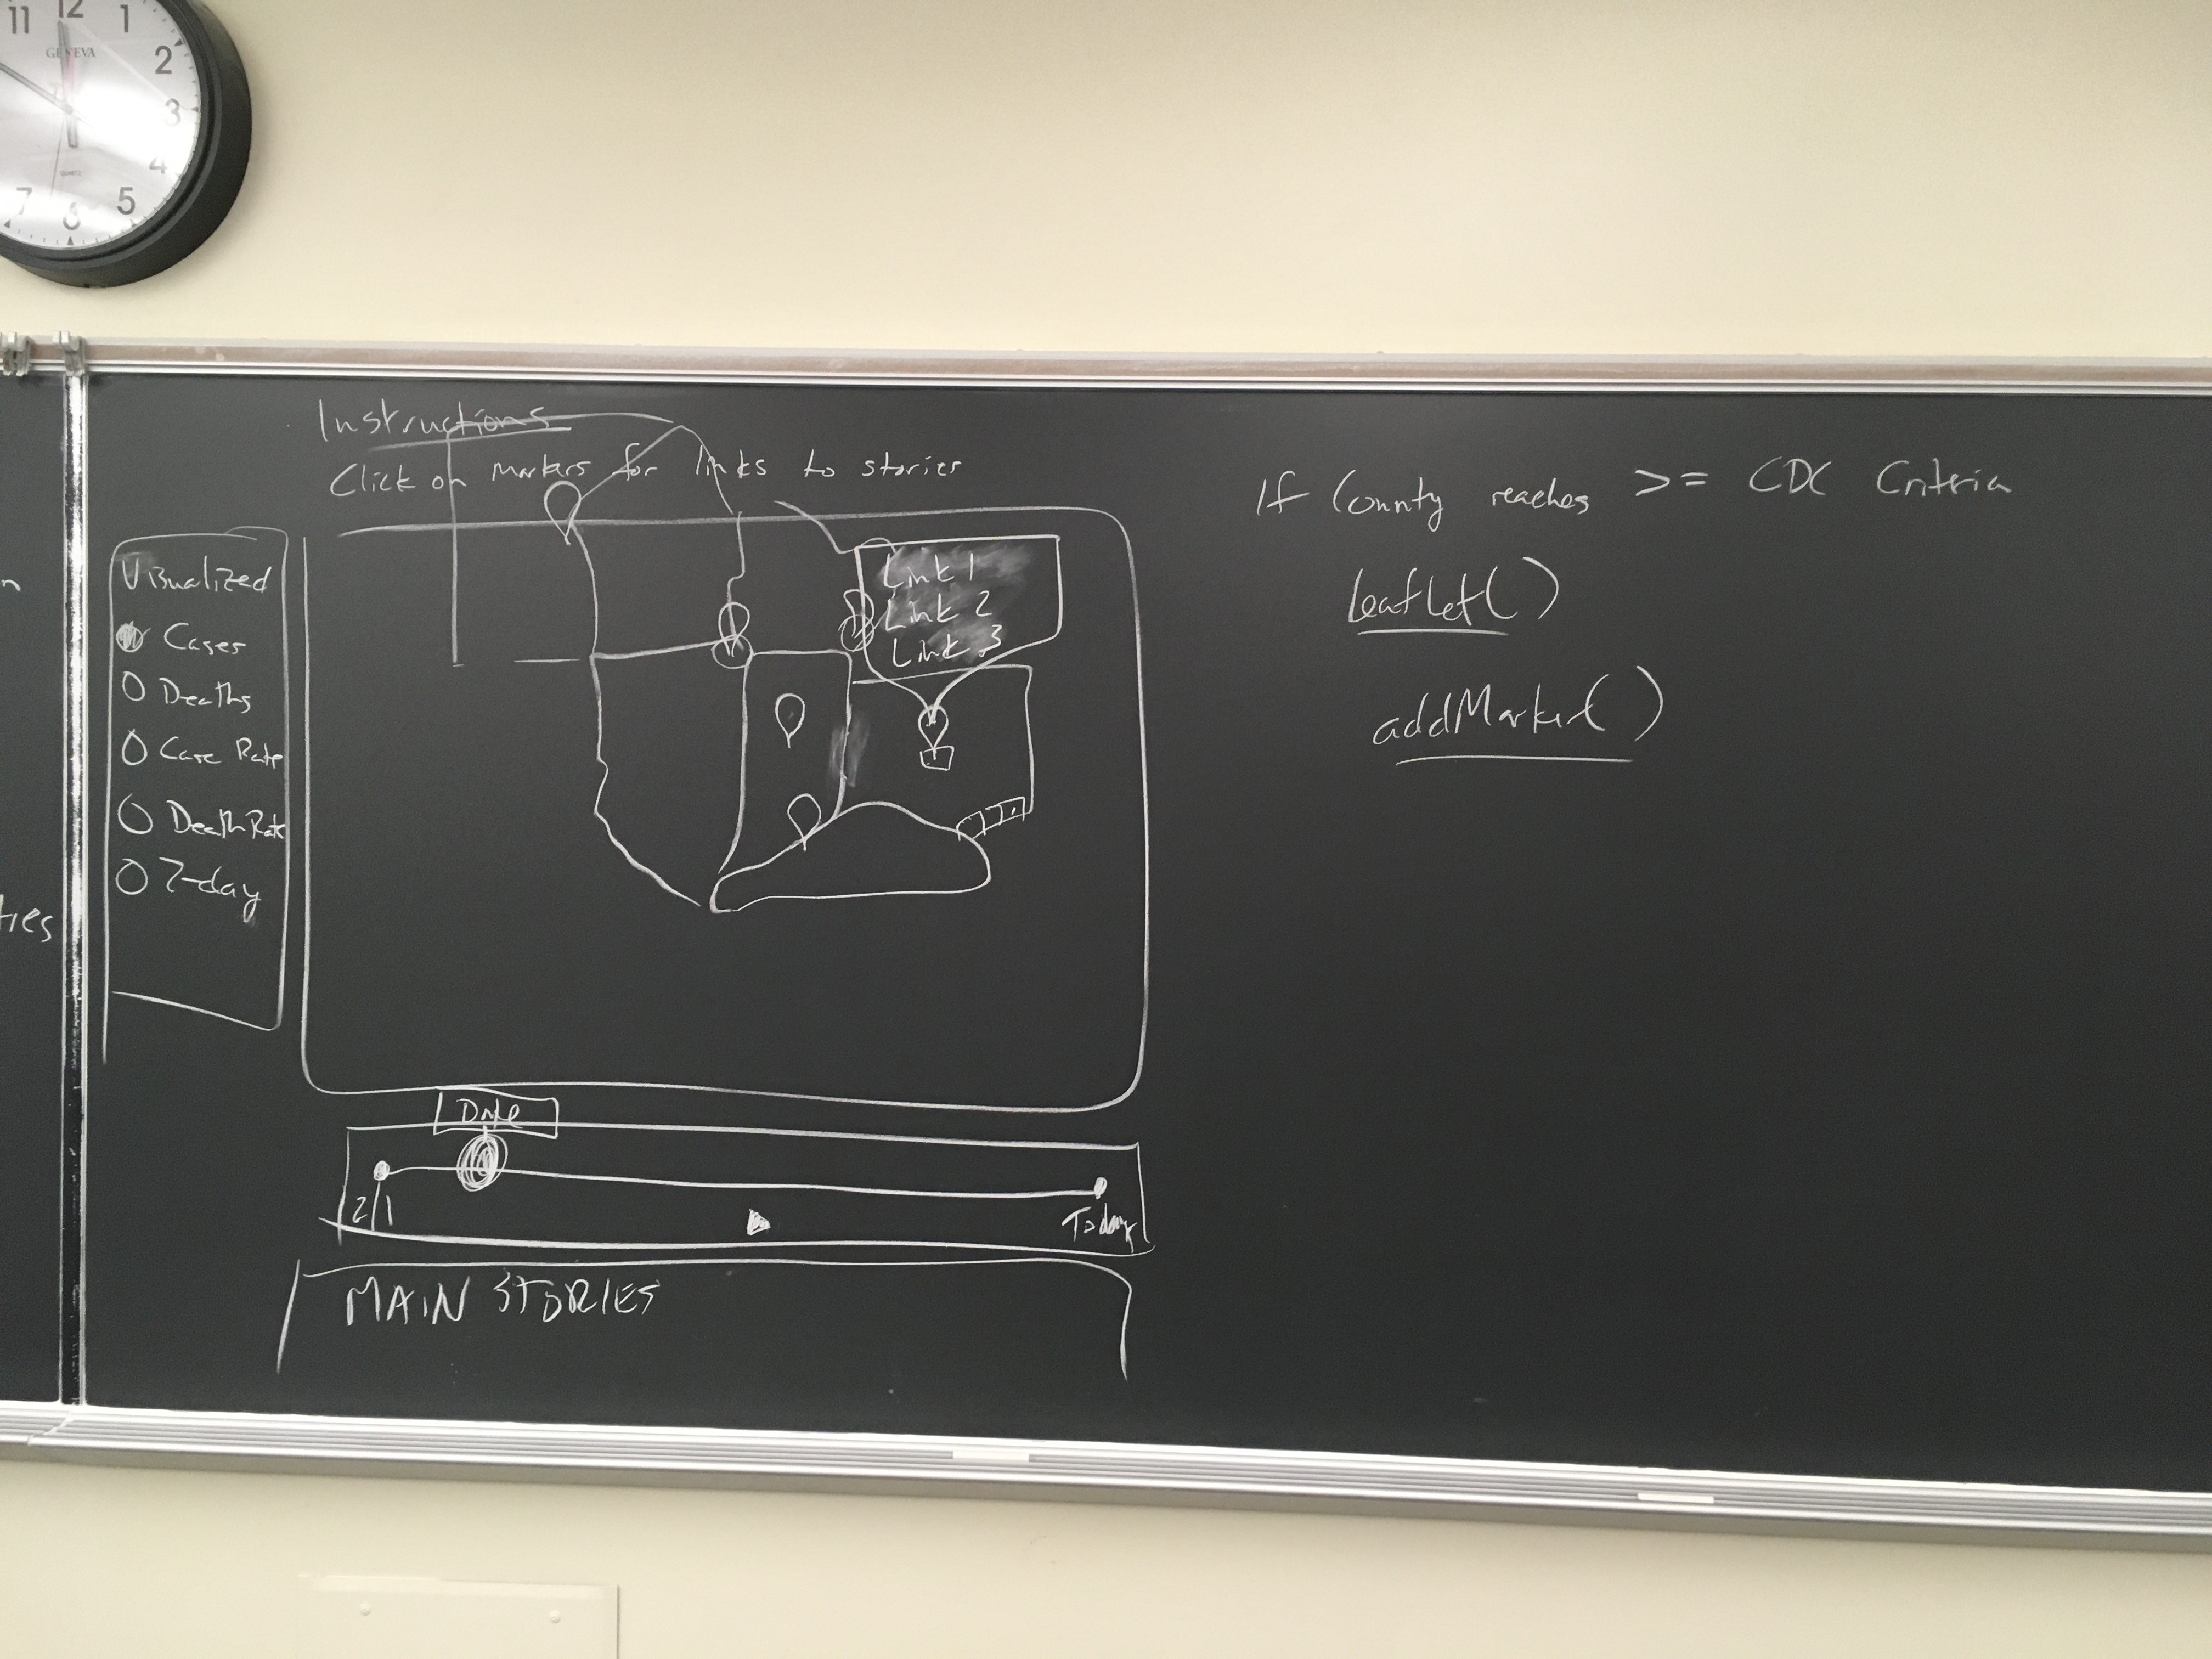 11 12 1
GENEVA
2
3
4
QUARTZ
7 6 5
Instructions
Click on markers for links to stories
Visualized
Cases
Deaths
Case Rate
Death Rate
7-day
Link 1
Link 2
Link 3
Date
2/1
Today
MAIN STORIES
If County reaches >= CDC Criteria
leaflet()
addMarker()
n
ties